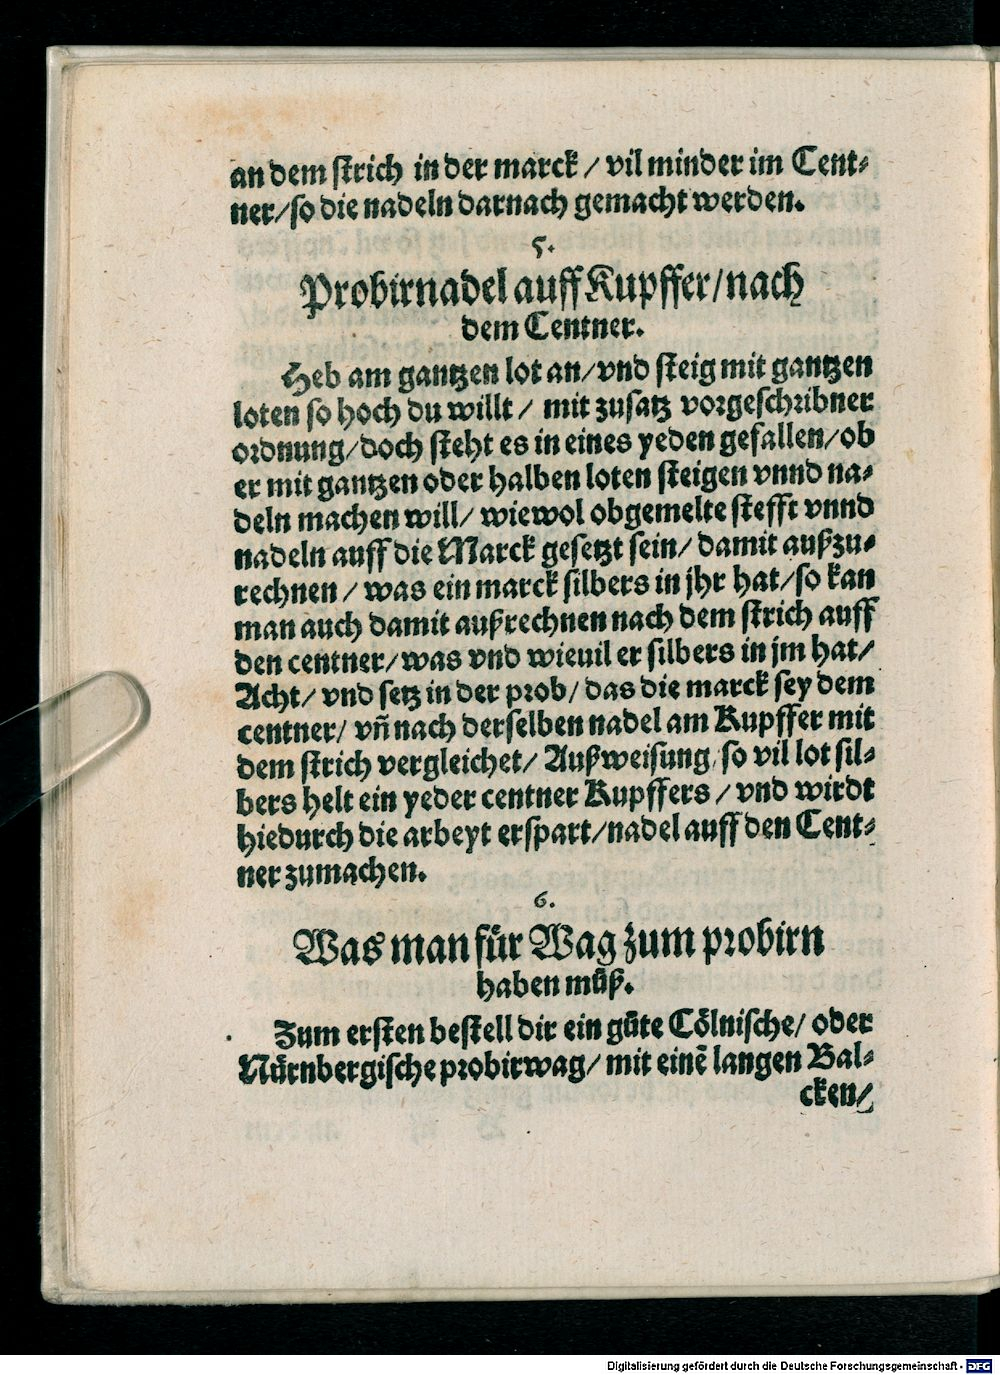 an dem ſtrich in der marck / vil minder im Cent⸗
ner/ſo die nadeln darnach gemacht werden.
5.
Probirnadel auff Kupffer/nach
dem Centner.
Heb am gantzen lot an/vnd ſteig mit gantzen
loten ſo hoch du willt / mit zuſatz vorgeſchribner
ordnung/doch ſteht es in eines yeden gefallen/ob
er mit gantzen oder halben loten ſteigen vnnd na⸗
deln machen will/ wiewol obgemelte ſtefft vnnd
nadeln auff die Marck geſetzt ſein/ damit außzu⸗
rechnen / was ein marck ſilbers in jhr hat/ſo kan
man auch damit außrechnen nach dem ſtrich auff
den centner/was vnd wieuil er ſilbers in jm hat/
Acht/ vnd ſetz in der prob/ das die marck ſey dem
centner/ vñ nach derſelben nadel am Kupffer mit
dem ſtrich vergleichet/ Außweiſung/ſo vil lot ſil⸗
bers helt ein yeder centner Kupffers / vnd wirdt
hiedurch die arbeyt erſpart/nadel auff den Cent⸗
ner zumachen.
6.
Was man für Wag zum probirn
haben můß.
Zum erſten beſtell dir ein gůte Cölniſche/ oder
Nürnbergiſche probirwag/ mit einē langen Bal⸗
cken/
Digitalisierung gefördert durch die Deutsche Forschungsgemeinschaft - DFG